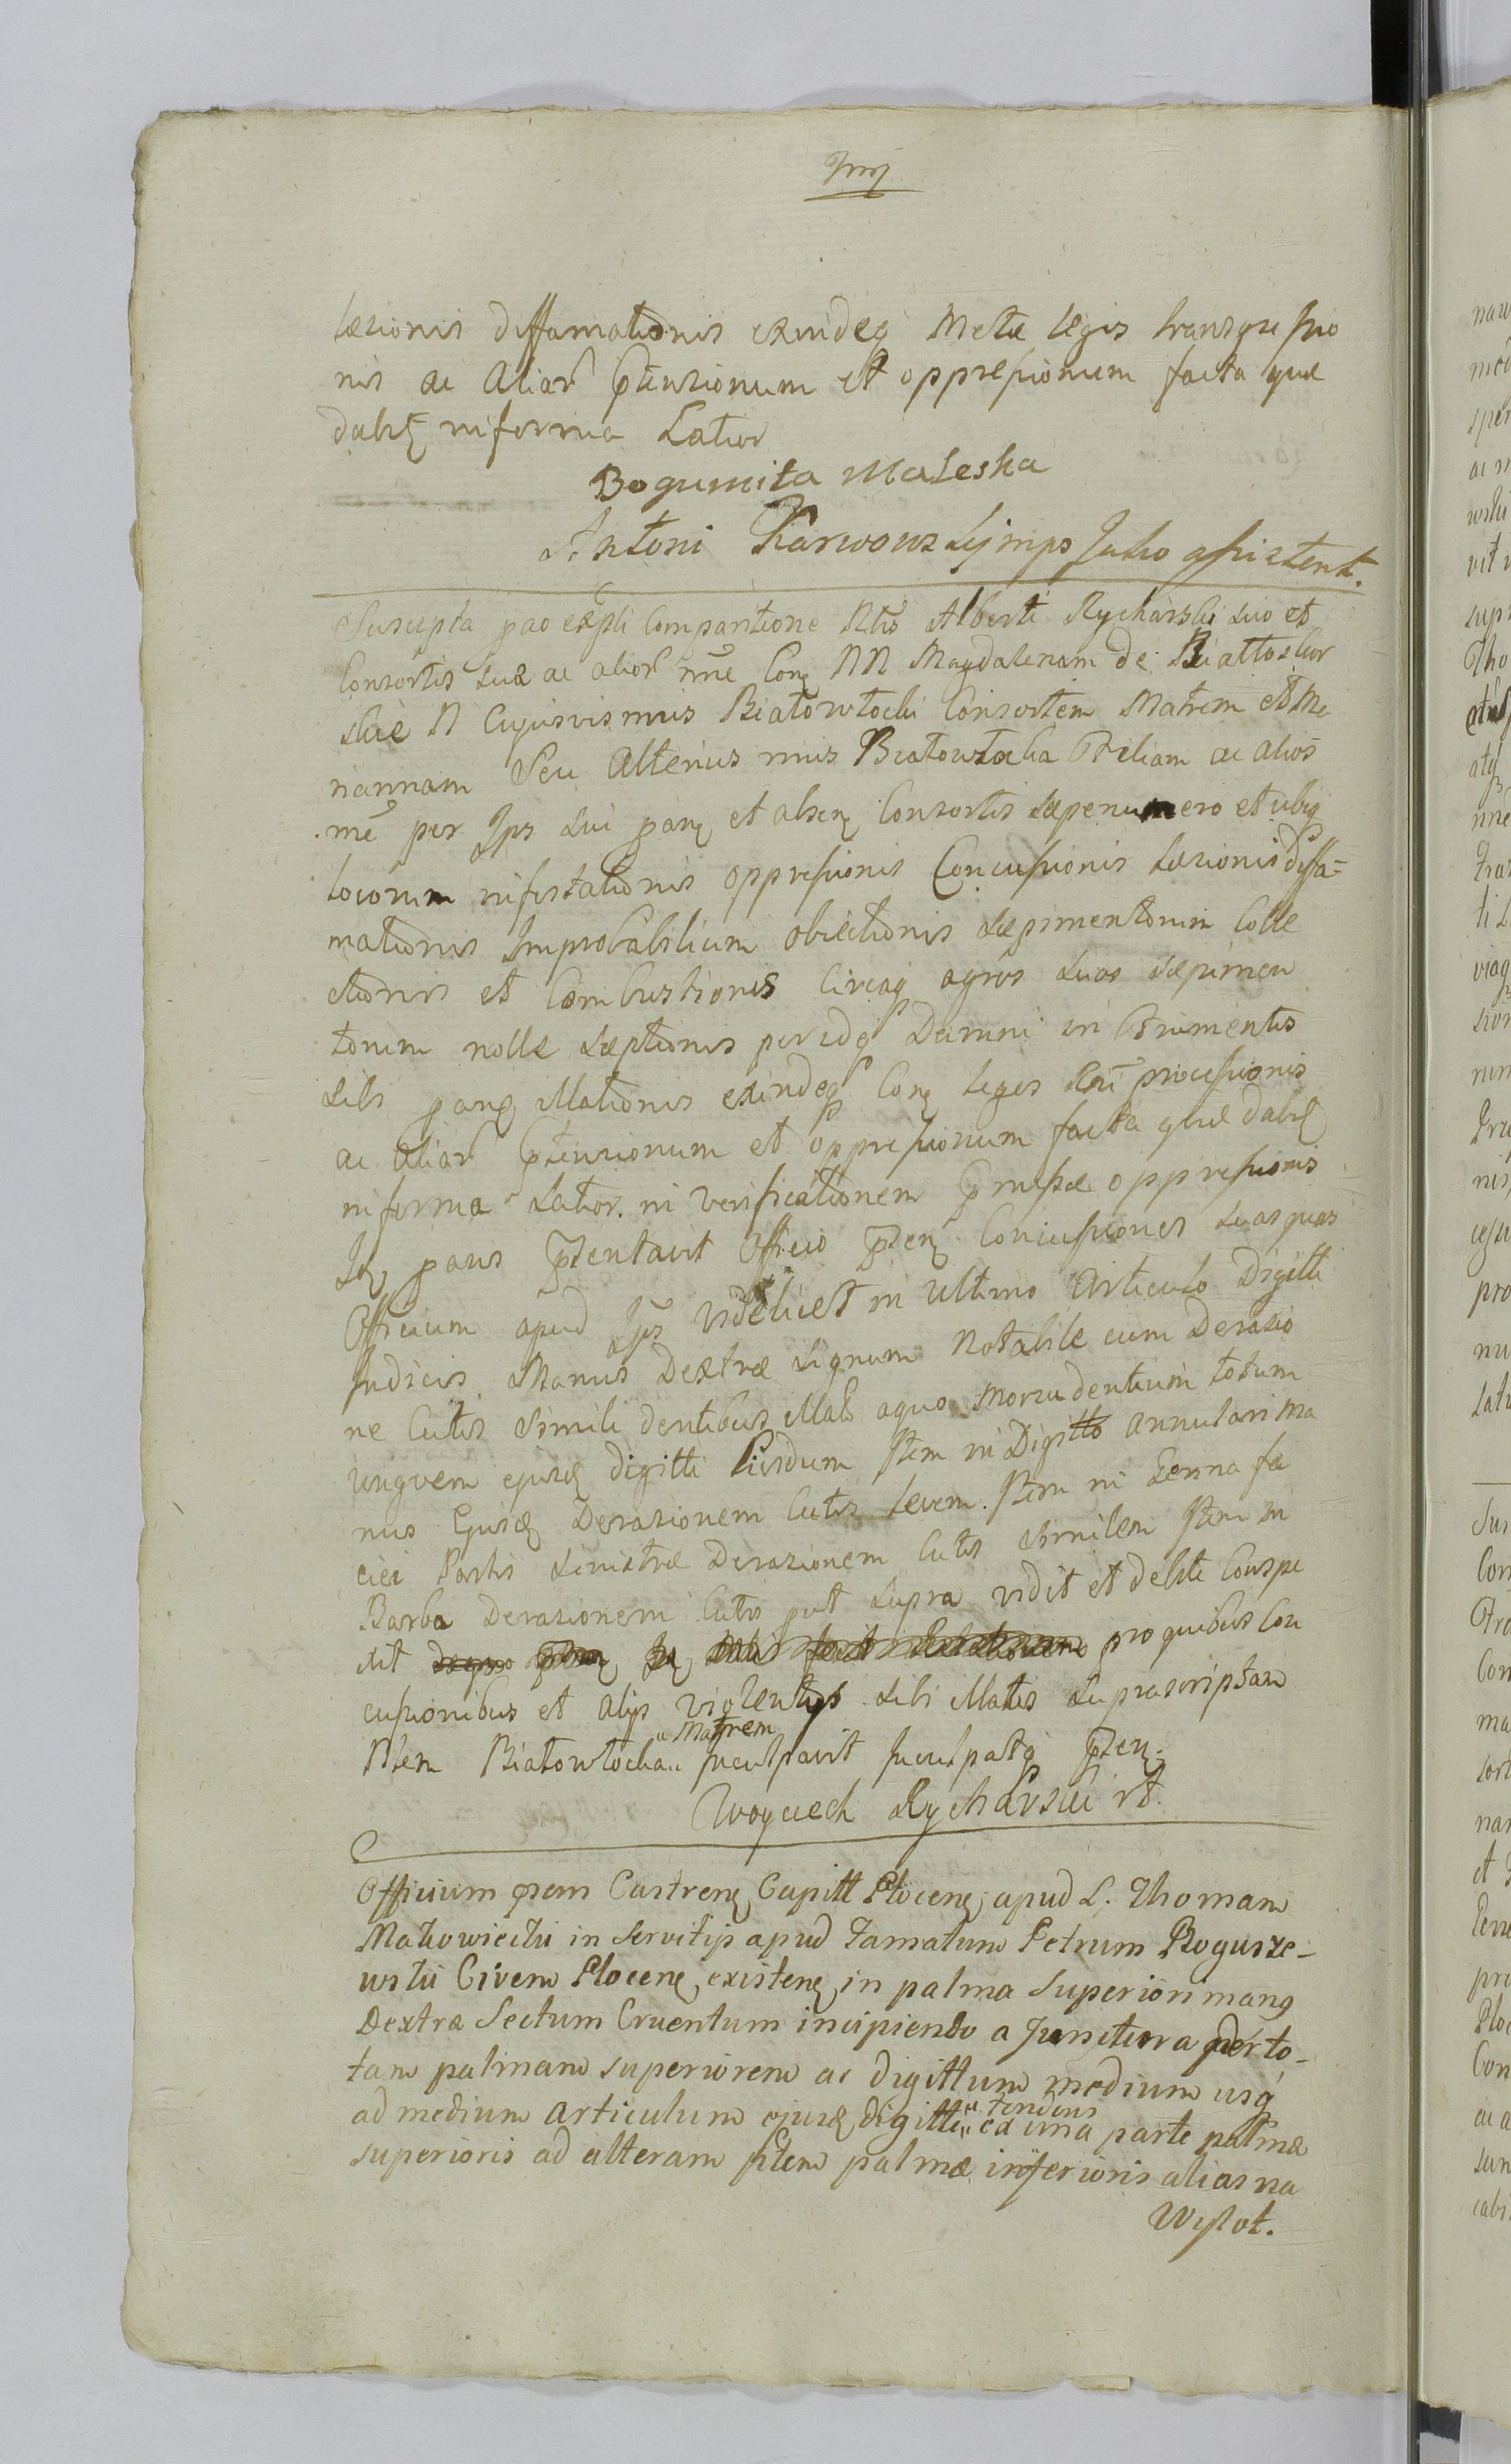 læsionis diffamationis exindeq Metæ legis transgressio
nis ac aliar ptensionum et oppressionum facta quæ
dabit informa Latior
Bogumiła Maleska
Antoni Karwowskj mpo Jako assistent.
Suscepta pao expli Comparitione Nlis Alberti Rycharski suo et
Consortis suæ ac alior nne Con NN Magdalenam de Białłoskor
skie N Cujusvis nnis Białowłocki Consortem Matrem et Ma
riannam Seu alterius nnis Białowłocka Filiam ac alios
me per Ips sui pane et absen Consortis sæpenumero et ubiq
locorum infestationis oppressionis Concussionis læsionis diffa=
mationis Improbabilium obiectionis sæpimentorum Colle
ctionis et Combustionis Circaq agros suos sæpimen
torum nolle sæptionis perideq Damni in Frumentis
sibi pane illationis exindeq Con leges Rni processionis
ac aliar ptensionum et oppressionum facta quæ dabit
informa Latior. in verificationem pmissæ oppressionis
Id pans ptentavit Officio pten Concussiones suas quas
Officium apud Ips videlicet in ultimo articulo Digitti
Indicis Manus Dextræ signum notabile cum Derasio
ne Cutis simili dentibus Illato aquo morsu dentium totum
unguem ejusd digitti lividum Item in Digitto annulari ma
nus Ejusd Derasionem Cutis levem. Item in Genna fa
ciei Partis sinistræ Derasionem Cutis similem Item in
Barba Derasionem Cutis put supra vidit et debite Conspe
xit pro quibus Con
cussionibus et alys violentys sibi Illatis suprascriptam
Nlem Białowłocka „Matrem“ Inculpavit Inculpatq pten.
Woyciech Rycharski rt.
Officium psens Castrens Capitt Plocens apud L. Thomam
Makowiecki in servitijs apud Famatum Petrum Bogusze-
wski Civem Plocens existens in palma superiori manq
Dextra Sectum Cruentum incipiendo a Junctura per to-
tam palmam superiorem ac digittum medium usq
ad medium articulum ejusd digitti „tendens“ ex una parte palmæ
superioris ad alteram ptem palmæ inferioris alias na
Wylot.